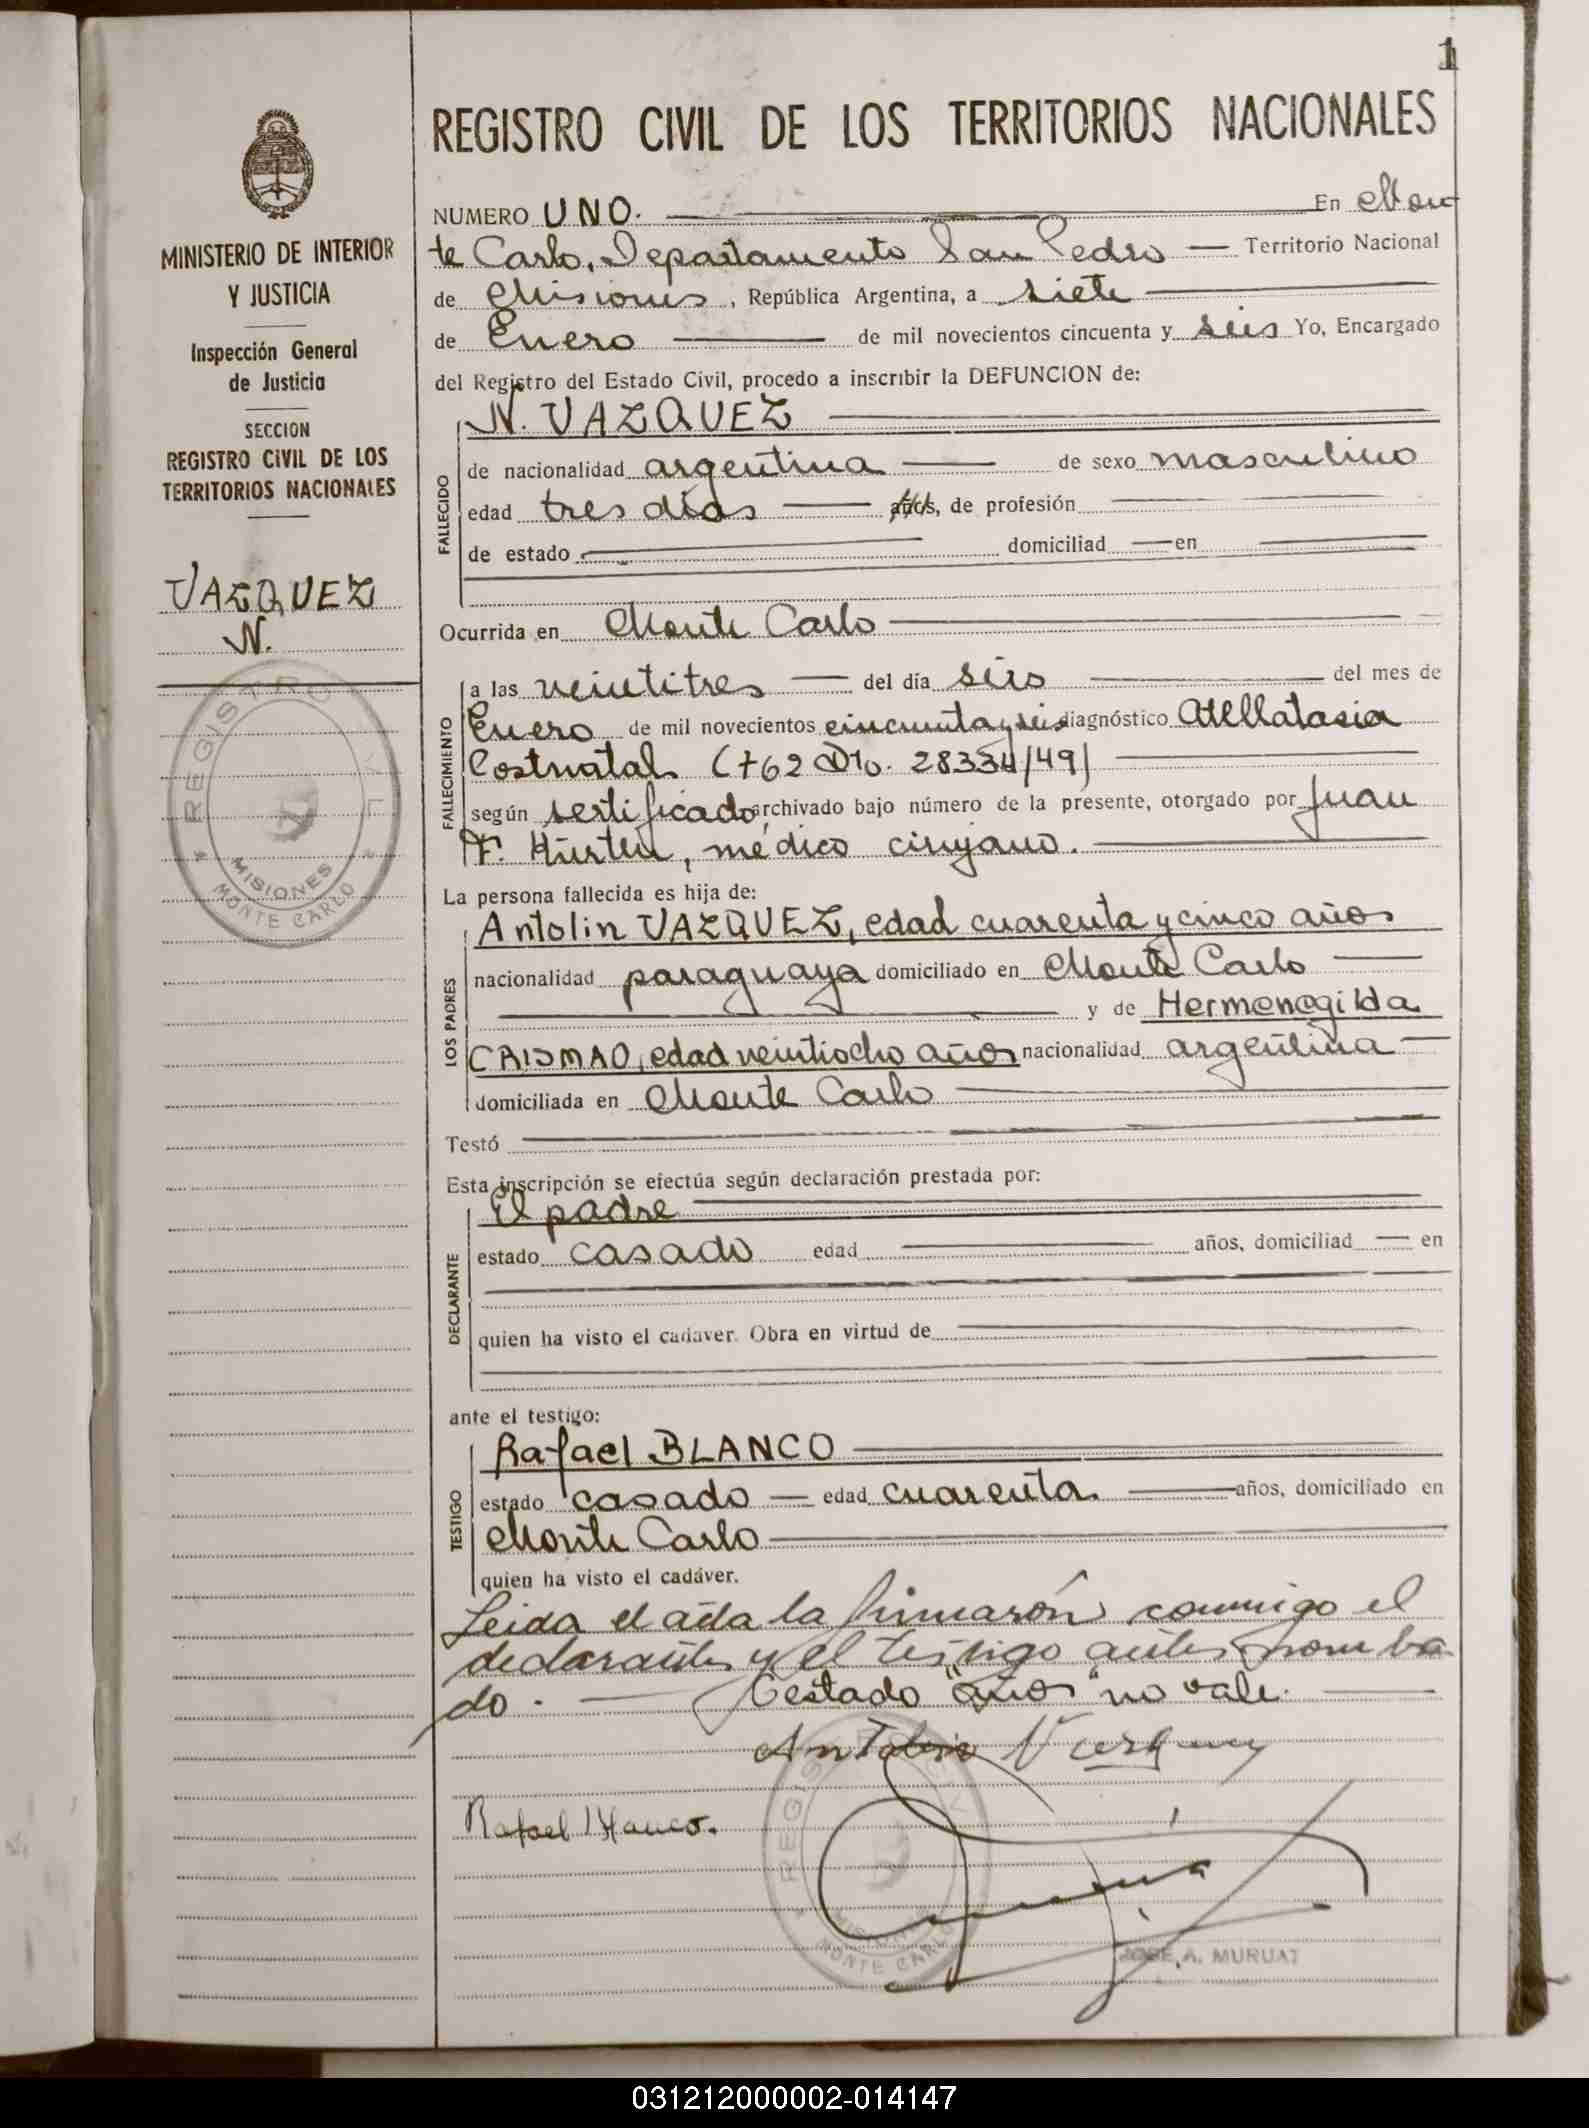 1
REGISTRO CIVIL DE LOS TERRITORIOS NACIONALES
MINISTERIO DE INTERIOR
Y JUSTICIA
Inspección General
de Justicia
SECCION
REGISTRO CIVIL DE LOS
TERRITORIOS NACIONALES
VAZQUEZ
N.
REGISTRO CIVIL
MISIONES
MONTE CARLO
NUMERO UNO. En Mon
te Carlo, Departamento San Pedro Territorio Nacional
de Misiones, República Argentina, a siete
de Enero de mil novecientos cincuenta y seis Yo, Encargado
del Registro del Estado Civil, procedo a inscribir la DEFUNCION de:
FALLECIDO
N. VAZQUEZ
de nacionalidad argentina de sexo masculino
edad tres días años, de profesión
de estado domiciliad en
Ocurrida en Monte Carlo
FALLECIMIENTO
a las veintitres del día seis del mes de
Enero de mil novecientos cincuenta y seis diagnóstico Atellatasia
Postnatal (762 Dto. 28334/49)
según sertificado archivado bajo número de la presente, otorgado por Juan
F. Hürten, médico cirujano.
La persona fallecida es hija de:
LOS PADRES
Antolin VAZQUEZ, edad cuarenta y cinco años
nacionalidad paraguaya domiciliado en Monte Carlo
y de Hermenegilda
CRISMAO, edad veintiocho años nacionalidad argentina
domiciliada en Monte Carlo
Testó
Esta inscripción se efectúa según declaración prestada por:
DECLARANTE
El padre
estado casado edad años, domiciliad en
quien ha visto el cadaver. Obra en virtud de
ante el testigo:
TESTIGO
Rafael BLANCO
estado casado edad cuarenta años, domiciliado en
Monte Carlo
quien ha visto el cadáver.
Leida el acta la firmarón conmigo el
declarante y el testigo antes nomba
do. Testado "años" no vale.
Antolin Vazquez
Rafael Blanco.
REGISTRO CIVIL
MISIONES
MONTE CARLO
JOSE A. MURUAT
031212000002-014147